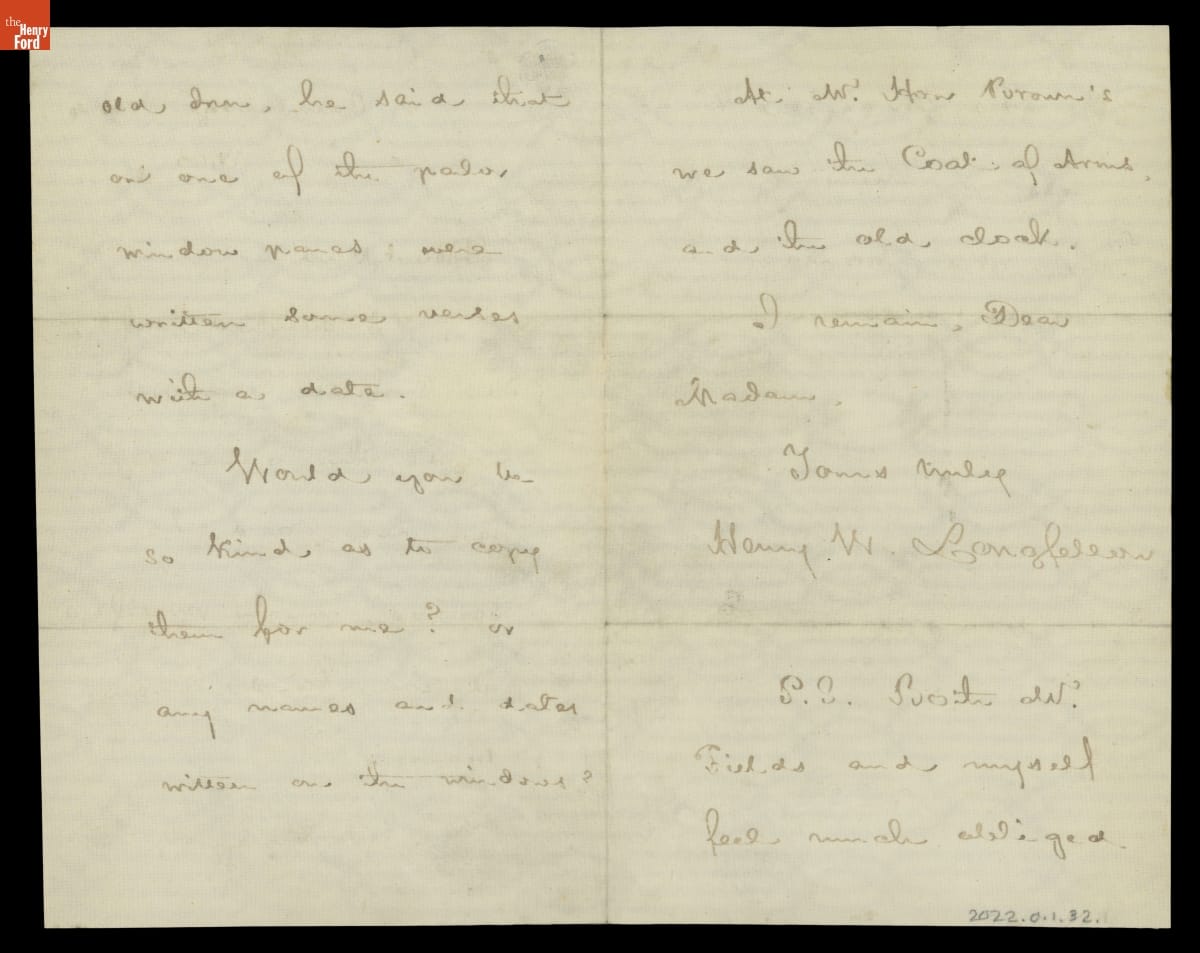 the
Henry
Ford
old Inn, he said that
on one of the palor
window panes were
written some verses
with a date.
Would you be
so kind as to copy
them for me? or
any names and dates
witten on the windows?
At Mr. Hon Broun's
we saw the Coat of Arms,
and the old clock.
I remain, Dear
Madam,
Yours truly
Henry W. Longfellow
P.S. Both Mr.
Fields and myself
feel much obliged.
2022.0.1.32.